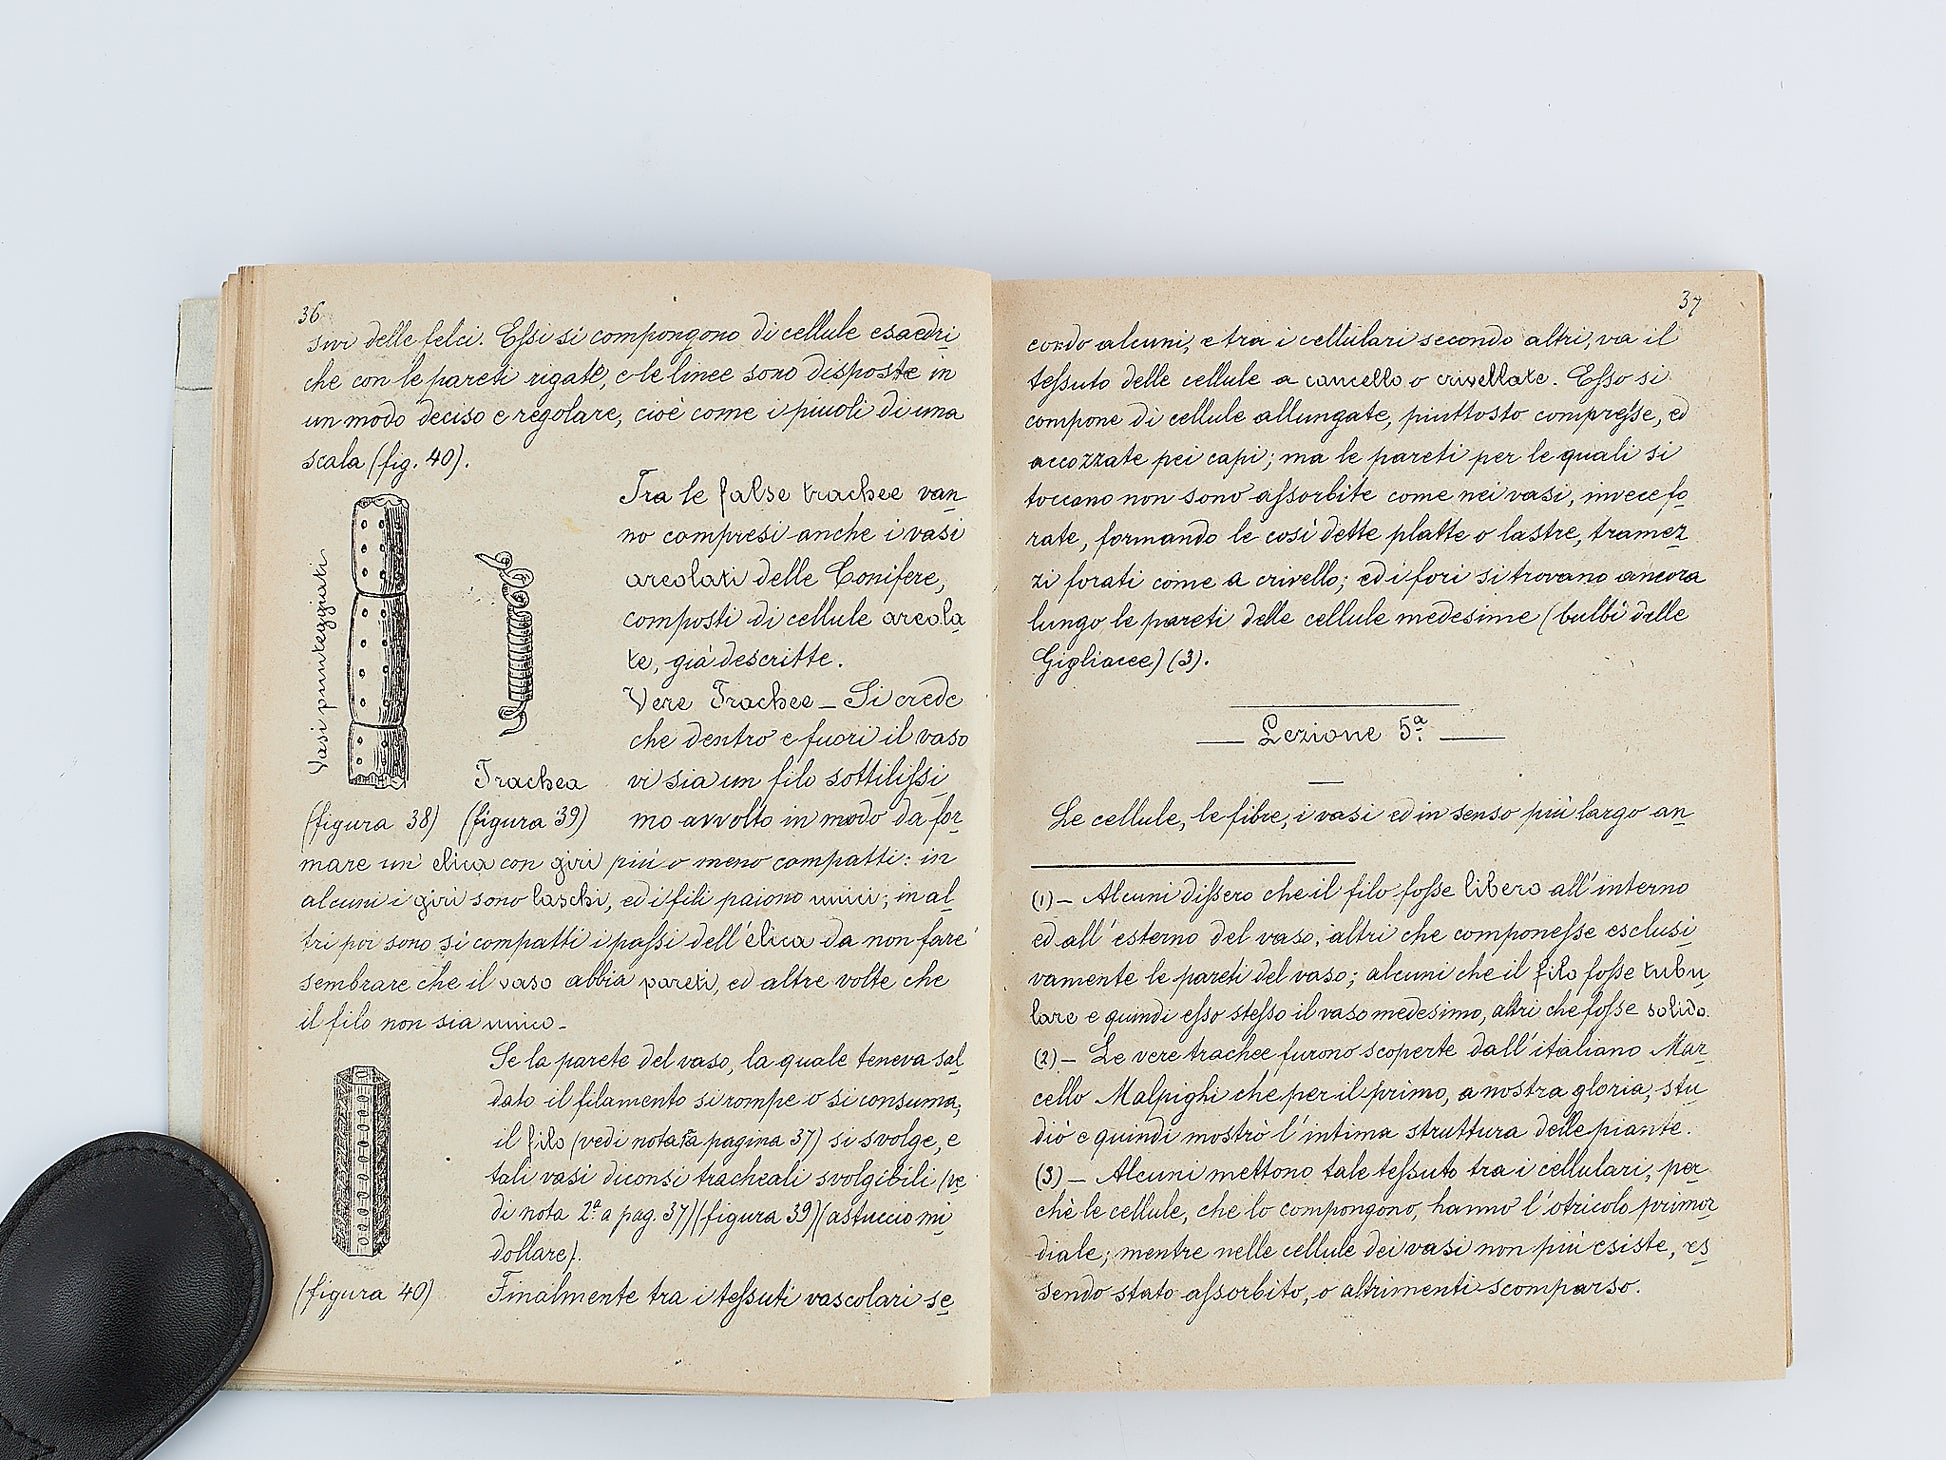 36
sivi delle felci. Essi si compongono di cellule esaedri
che con le pareti rigate, e le linee sono disposte in
un modo deciso e regolare, cioè come i piuoli di una
scala (fig. 40).
Vasi punteggiati
(figura 38)
Trachea
(figura 39)
Tra le false trachee van
no compresi anche i vasi
areolati delle Conifere,
composti di cellule areola
te, già descritte.
Vere Trachee – Si crede
che dentro e fuori il vaso
vi sia un filo sottilissi
mo avvolto in modo da for
mare un' elica con giri più o meno compatti: in
alcuni i giri sono laschi, ed i fili paiono unici; in al
tri poi sono sì compatti i passi dell'elica da non fare
sembrare che il vaso abbia pareti, ed altre volte che
il filo non sia unico.
(figura 40)
Se la parete del vaso, la quale teneva sal
dato il filamento si rompe o si consuma,
il filo (vedi nota 1a a pagina 37) si svolge, e
tali vasi diconsi tracheali svolgibili (ve
di nota 2ª a pag. 37) (figura 39) (astuccio mi
dollare).
Finalmente tra i tessuti vascolari se
37
condo alcuni, e tra i cellulari secondo altri, va il
tessuto delle cellule a cancello o crivellate. Esso si
compone di cellule allungate, piuttosto compresse, ed
accozzate pei capi; ma le pareti per le quali si
toccano non sono assorbite come nei vasi, invece fo
rate, formando le così dette platte o lastre, tramez
zi forati come a crivello; ed i fori si trovano ancora
lungo le pareti delle cellule medesime (bulbi delle
Gigliacee) (3).
Lezione 5ª
Le cellule, le fibre, i vasi ed in senso più largo an
(1) – Alcuni dissero che il filo fosse libero all'interno
ed all'esterno del vaso, altri che componesse esclusi
vamente le pareti del vaso; alcuni che il filo fosse tubu
lare e quindi esso stesso il vaso medesimo, altri che fosse solido.
(2) – Le vere trachee furono scoperte dall'italiano Mar
cello Malpighi che per il primo, a nostra gloria, stu
diò e quindi mostrò l'intima struttura delle piante.
(3) – Alcuni mettono tale tessuto tra i cellulari, per
chè le cellule, che lo compongono, hanno l'otricolo primor
diale; mentre nelle cellule dei vasi non più esiste, es
sendo stato assorbito, o altrimenti scomparso.